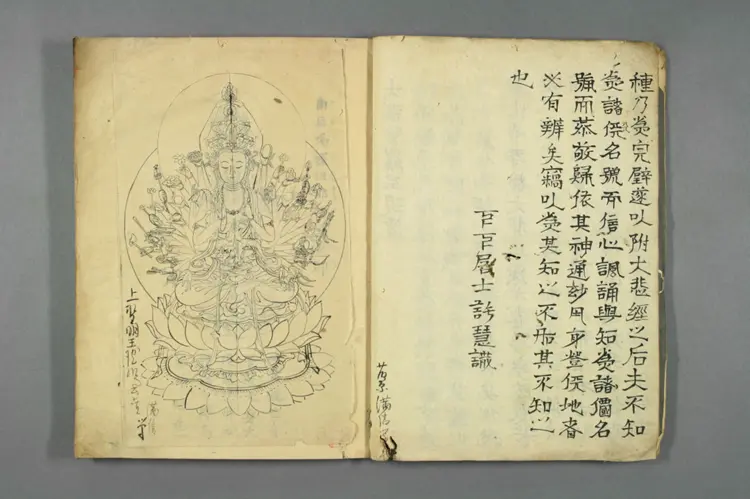 種乃爲完璧遂以附大悲經之后夫不知
爲諸佛名號而信心諷誦與知爲諸名
號而恭敬歸依其神通妙用身登佛地者
必有辨矣竊以爲其知之不若其不知之
也
居士許慧識
上聖明王